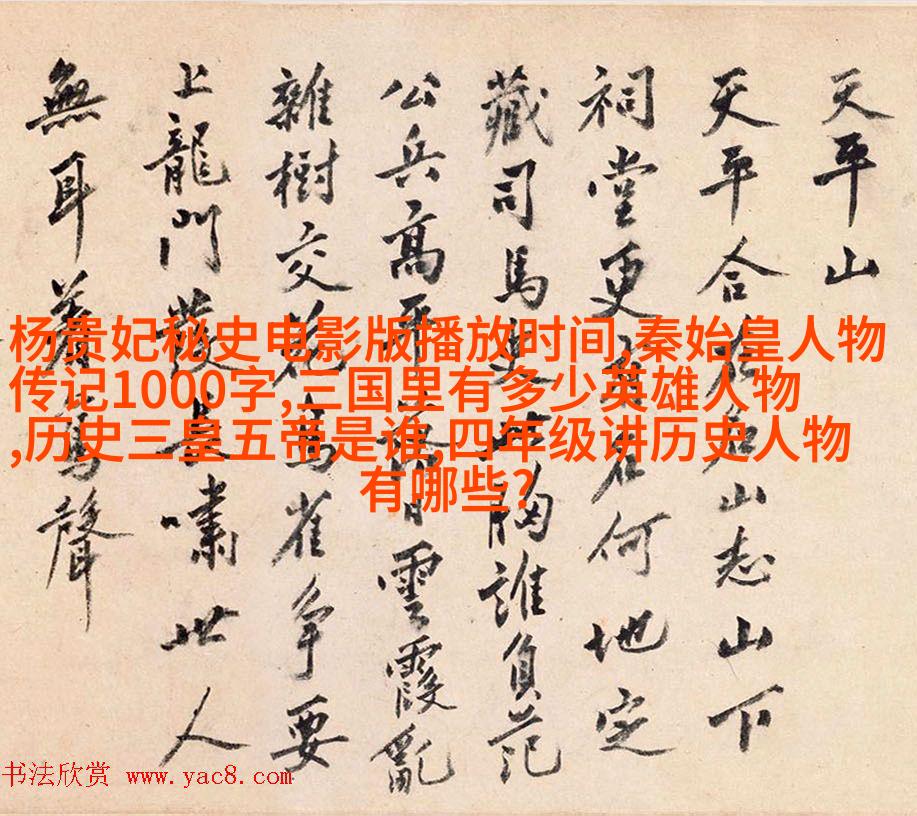 天平山
天平合名山志山下
祠堂更何地定
藏司馬胸誰負范
公兵高雲霞亂
雜樹交花雀爭要
上龍門發長嘯世人
無耳聲
杨贵妃秘史电影版播放时间,秦始皇人物
传记1000字,三国里有多少英雄人物
,历史三皇五帝是谁,四年级讲历史人物
有哪些?
书法欣赏 www.yac8.com